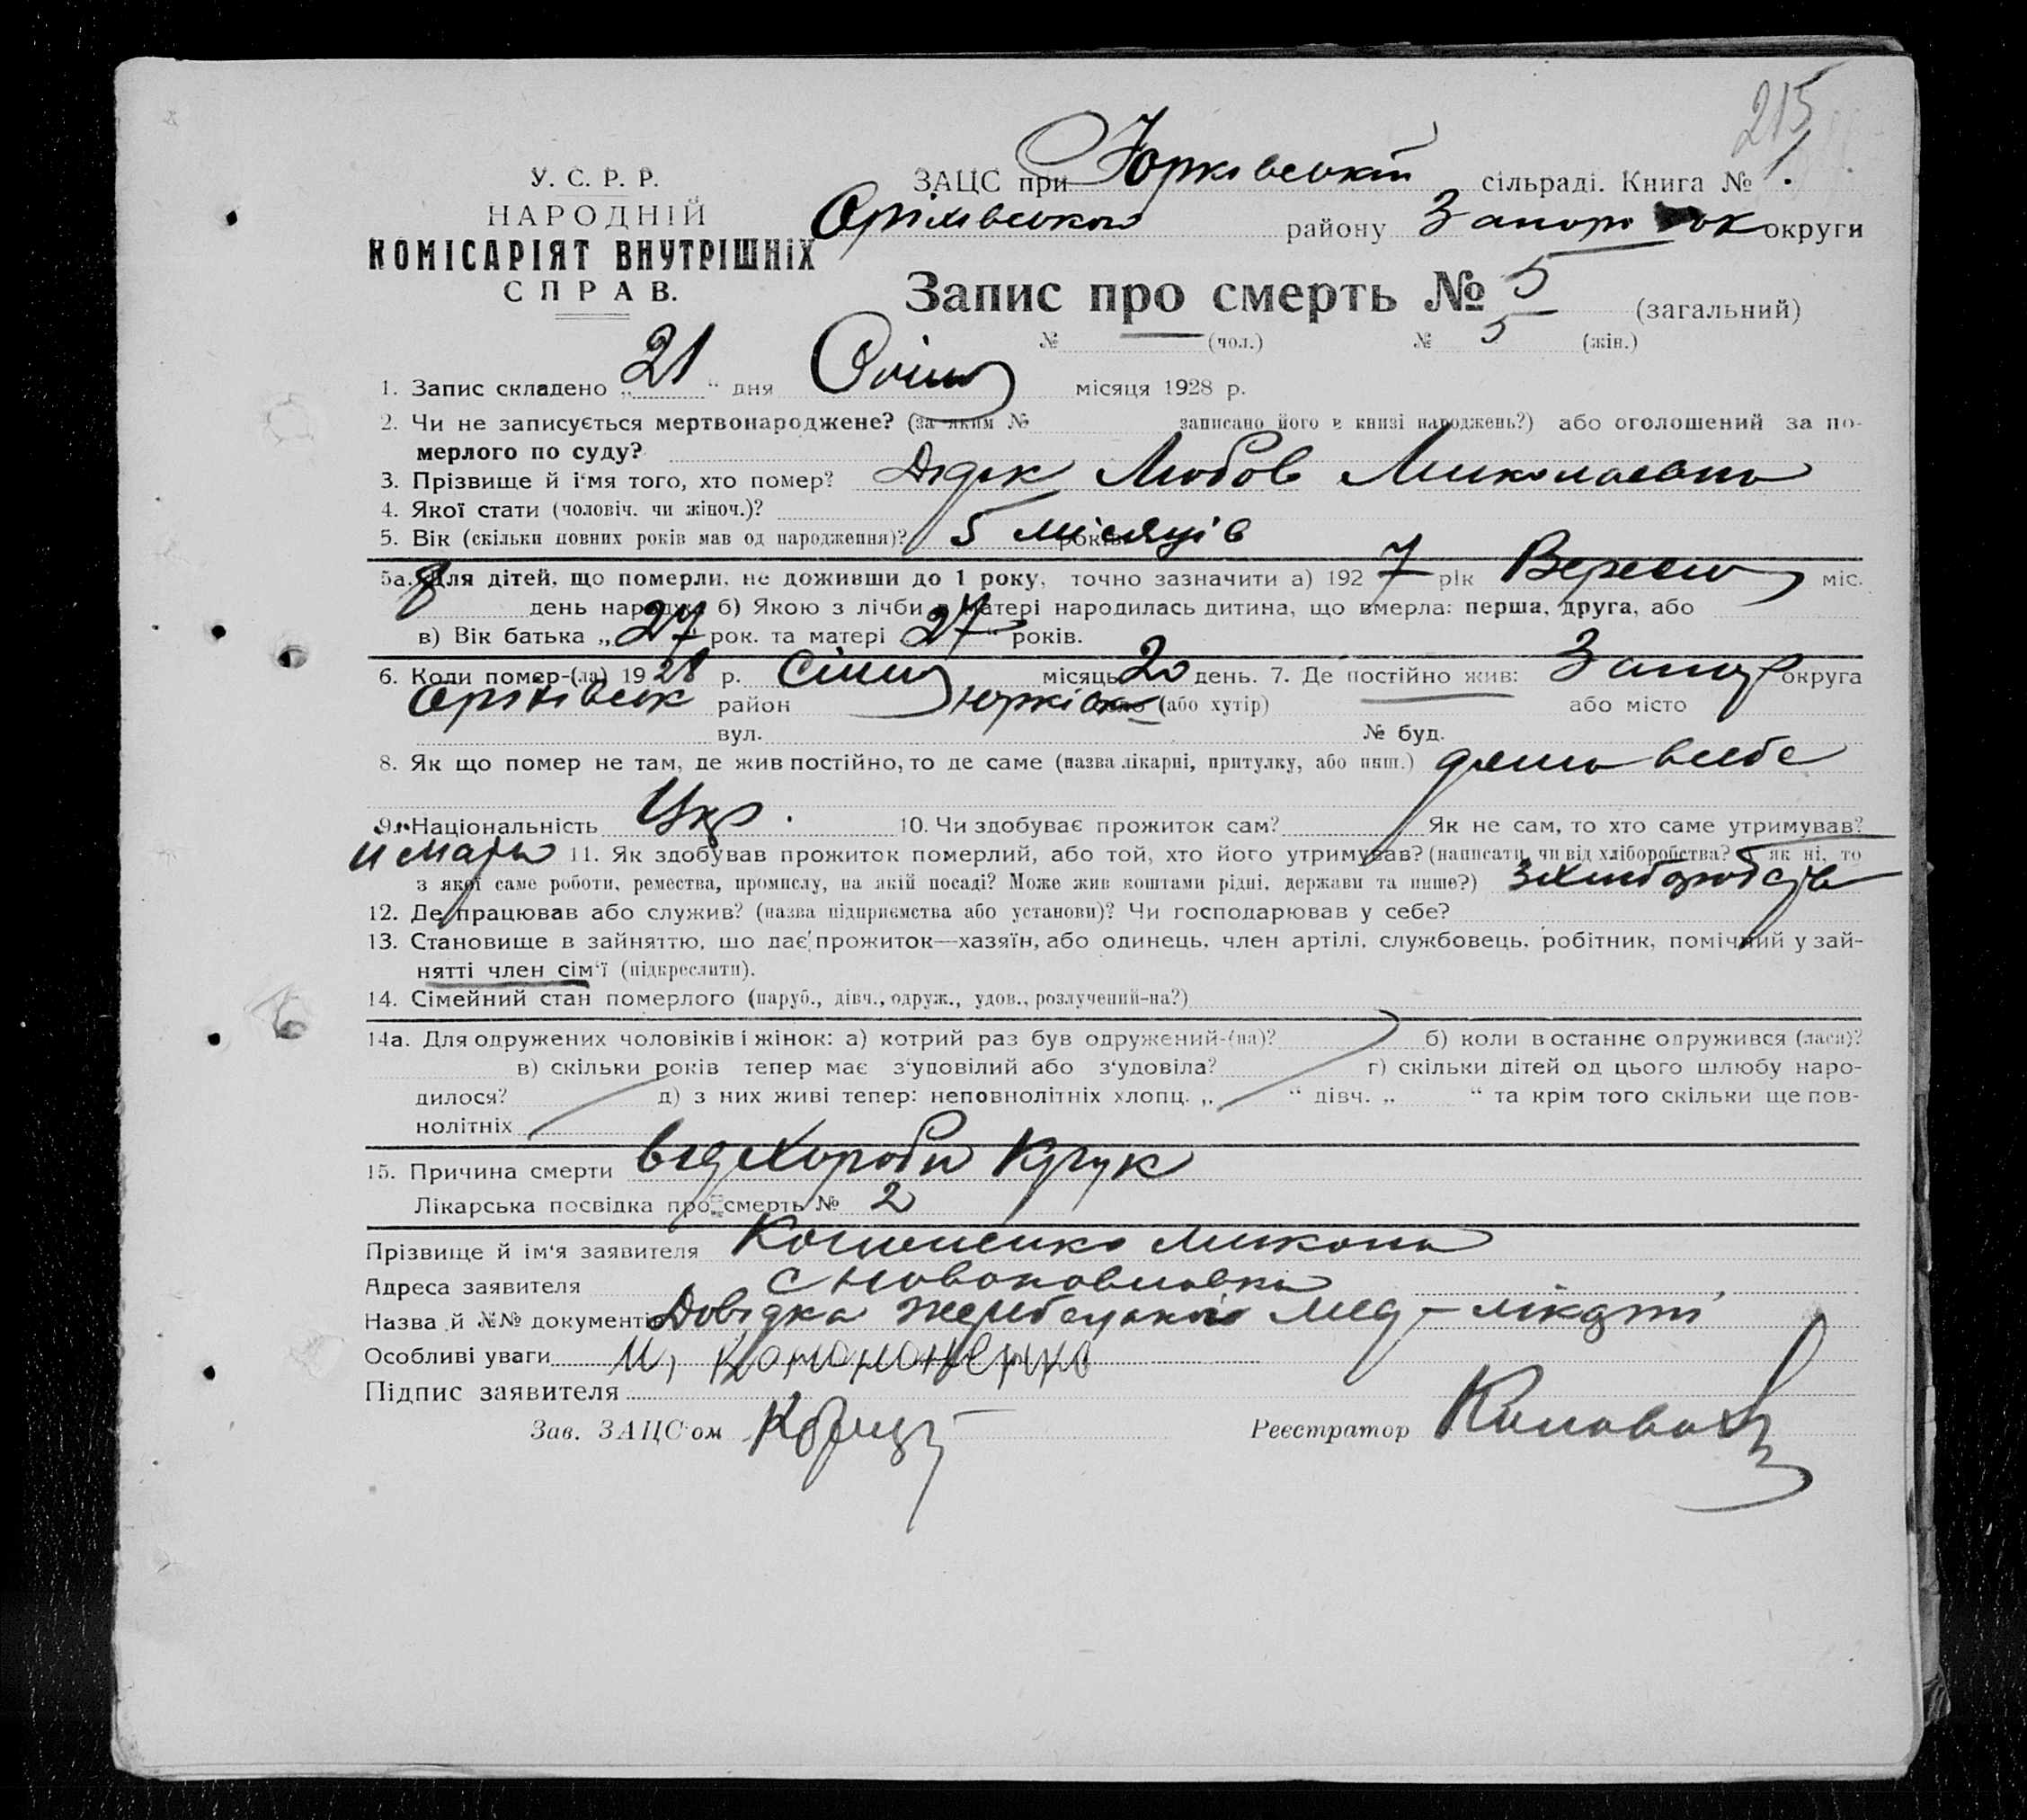 215
У. С. Р. Р.
НАРОДНІЙ
КОМІСАРІЯТ ВНУТРІШНІХ
СПРАВ.
ЗАЦС при Юрківській сільраді. Книга № 1.
Оріхівського району Запоріж ок округи
Запис про смерть № 5 (загальний)
№ — (чол.) № 5 (жін.)
1. Запис складено „ 21 “ дня Січня місяця 1928 р.
2. Чи не записується мертвонароджене? (за яким № записано його в книзі народжень?) або оголошений за по-
мерлого по суду?
3. Прізвище й і‘мя того, хто помер? Дідок Любов Миколаевна
4. Якої стати (чоловіч. чи жіноч.)?
5. Вік (скільки повних років мав од народження)? 5 місяців років
5а. Для дітей, що померли, не доживши до 1 року, точно зазначити а) 192 7 рік Вересня міс.
8 день народж. б) Якою з лічби в матері народилась дитина, що вмерла: перша, друга, або
в) Вік батька „ 27 “ рок. та матері „ 27 “ років.
6. Коли помер-(ла) 19 28 р. Січня місяць 20 день. 7. Де постійно жив: Запор округа
Оріхівськ район Юрківка село (або хутір) або місто
вул. № буд.
8. Як що помер не там, де жив постійно, то де саме (назва лікарні, притулку, або инш.) дома всебе
9. Національність Укр. 10. Чи здобуває прожиток сам? Як не сам, то хто саме утримував?
и мать 11. Як здобував прожиток померлий, або той, хто його утримував? (написати, чи від хліборобства? як ні, то
з якої саме роботи, ремества, промислу, на якій посаді? Може жив коштами рідні, держави та инше?) зхлиборобства
12. Де працював або служив? (назва підприємства або установи)? Чи господарював у себе?
13. Становище в зайняттю, що дає прожиток—хазяїн, або одинець, член артілі, службовець, робітник, помічний у зай-
нятті член сім‘ї (підкреслити).
14. Сімейний стан померлого (паруб., дівч., одруж., удов., розлучений-на?)
14а. Для одружених чоловіків і жінок: а) котрий раз був одружений-(на)? б) коли в останнє одружився (лася)?
в) скільки років тепер має з‘удовілий або з‘удовіла? г) скільки дітей од цього шлюбу наро-
дилося? д) з них живі тепер: неповнолітніх хлопц. „ “ дівч. „ “ та крім того скільки ще пов-
нолітніх
15. Причина смерти від Хороби Круп
Лікарська посвідка про смерть № 2
Прізвище й ім‘я заявителя Микола
Адреса заявителя с Новопавловка
Назва й №№ документів Довідка Жеребецької мед-
Особливі уваги
Підпис заявителя
Зав. ЗАЦС‘ом Реєстратор